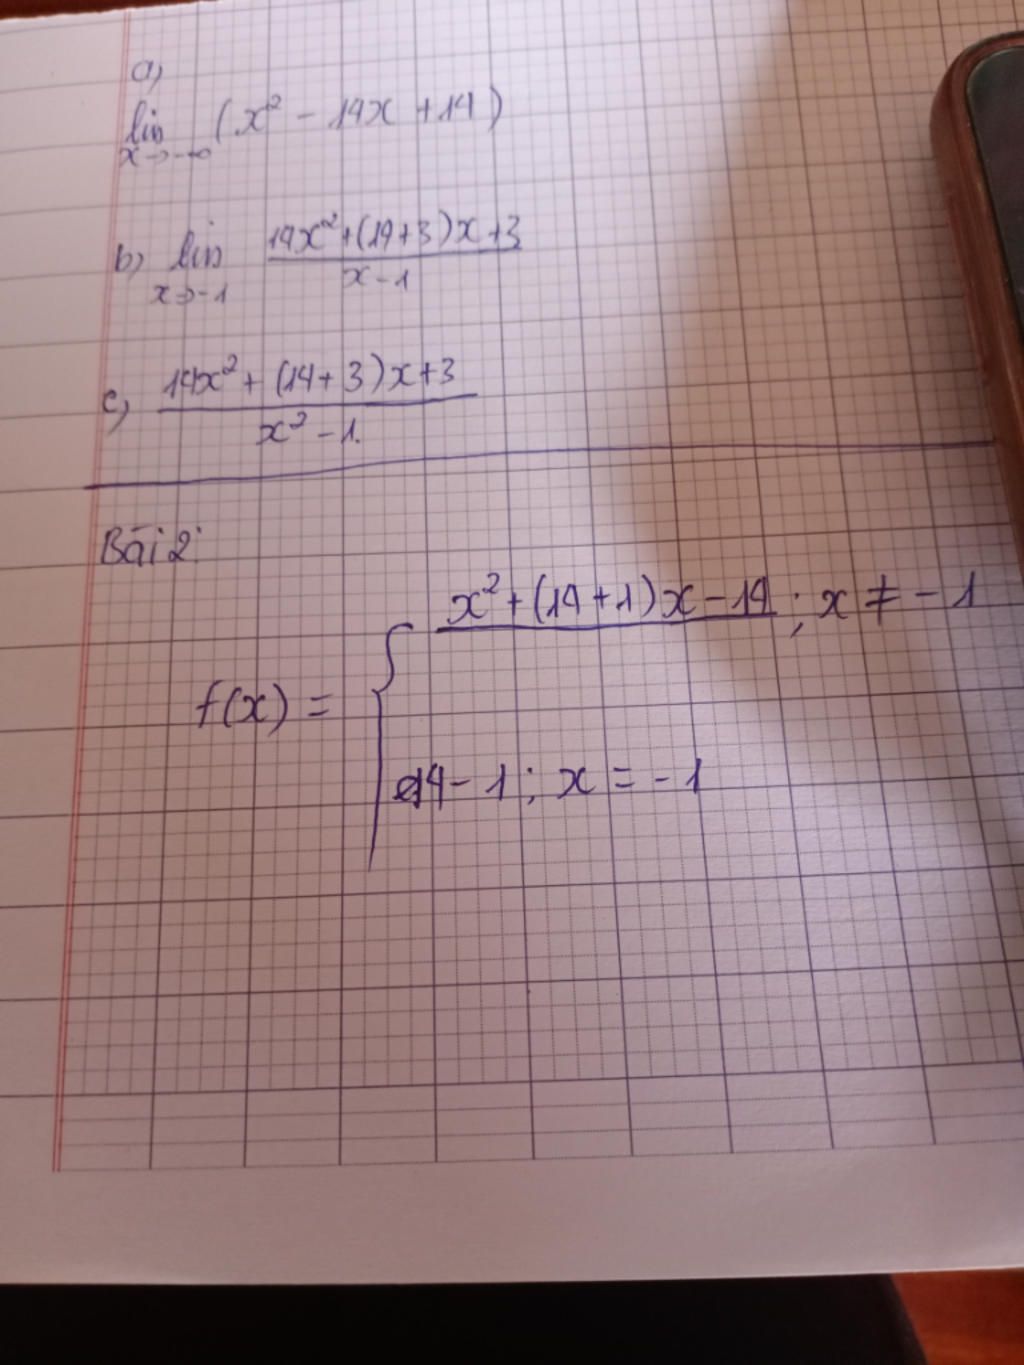 a)
lim (x² - 14x + 14)
x→-∞
b) lim 14x² + (14+3)x + 3
x→-1 x - 1
c) 14x² + (14+3)x + 3
x² - 1.
Bài 2:
x² + (14+1)x - 14 ; x ≠ -1
f(x) = {
14 - 1 ; x = -1